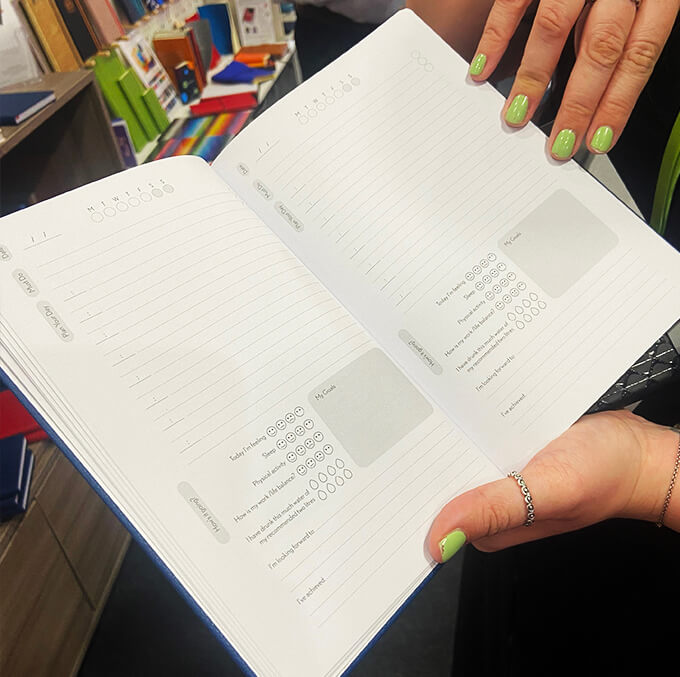 M T W T F S S
/ /
Date
Must Do
Plan Your Day
:
:
:
:
:
:
My Goals
How's it going?
Today I'm feeling
Sleep
Physical activity
How is my work/life balance?
I have drunk this much water of
my recommended two litres
I'm looking forward to:
I've achieved:
M T W T F S S
/ /
Date
Must Do
Plan Your Day
:
:
:
:
:
:
My Goals
How's it going?
Today I'm feeling
Sleep
Physical activity
How is my work/life balance?
I have drunk this much water of
my recommended two litres
I'm looking forward to:
I've achieved: